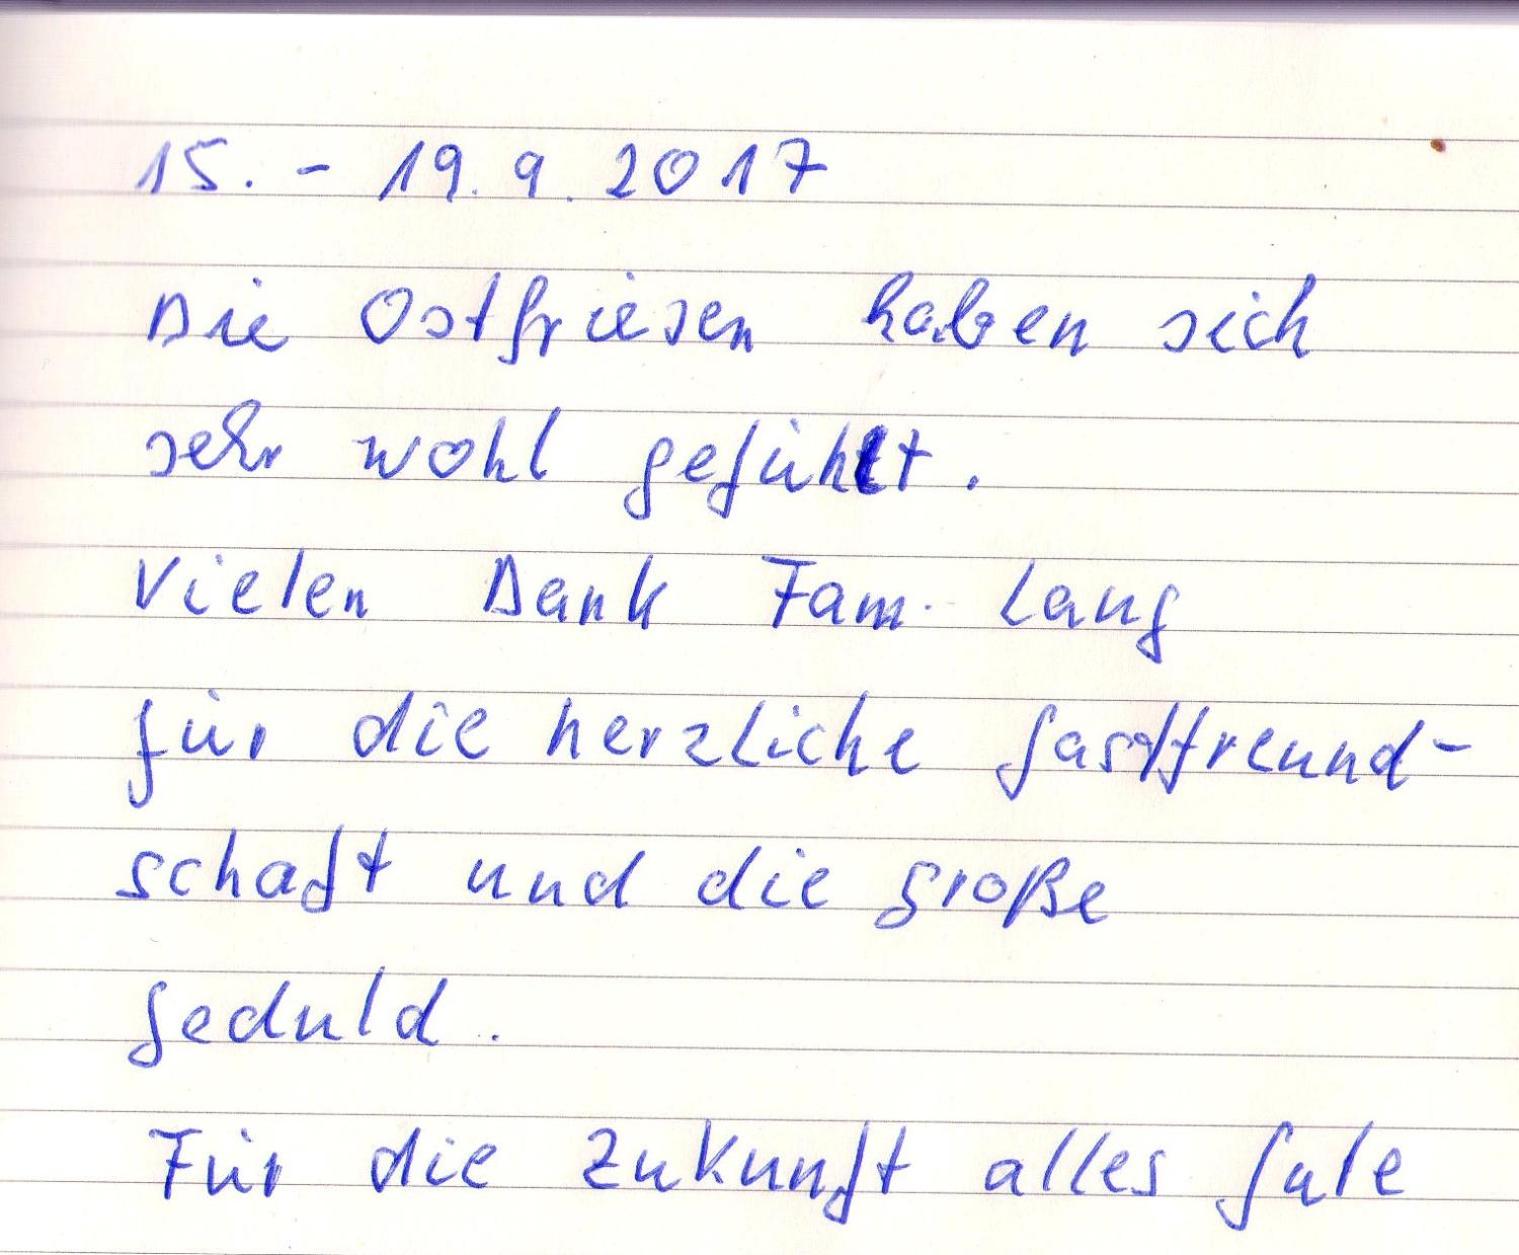 15. - 19. 9. 2017
Die Ostfriesen haben sich
sehr wohl gefühlt.
Vielen Dank Fam. Lang
für die herzliche Gastfreund-
schaft und die große
Geduld.
Für die Zukunft alles Gute